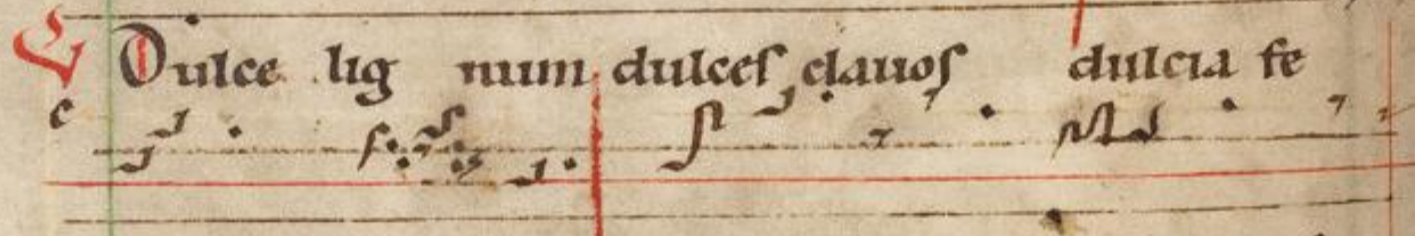 ℣ Dulce lig num dulces clauos dulcia fe
c